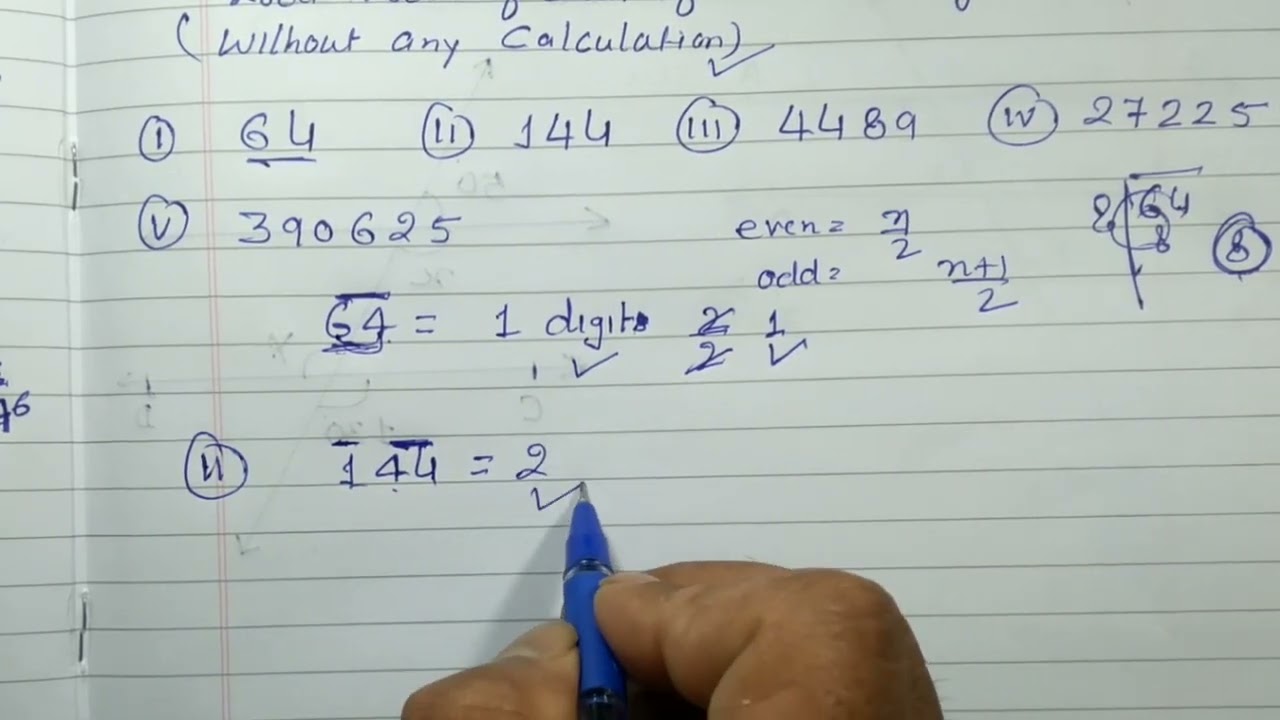 (Without any Calculation)
(i) 64 (ii) 144 (iii) 4489 (iv) 27225
(v) 390625
even = n/2
odd = n+1/2
8 64
8
8
64 = 1 digits 2/2 1
(ii) 144 = 2